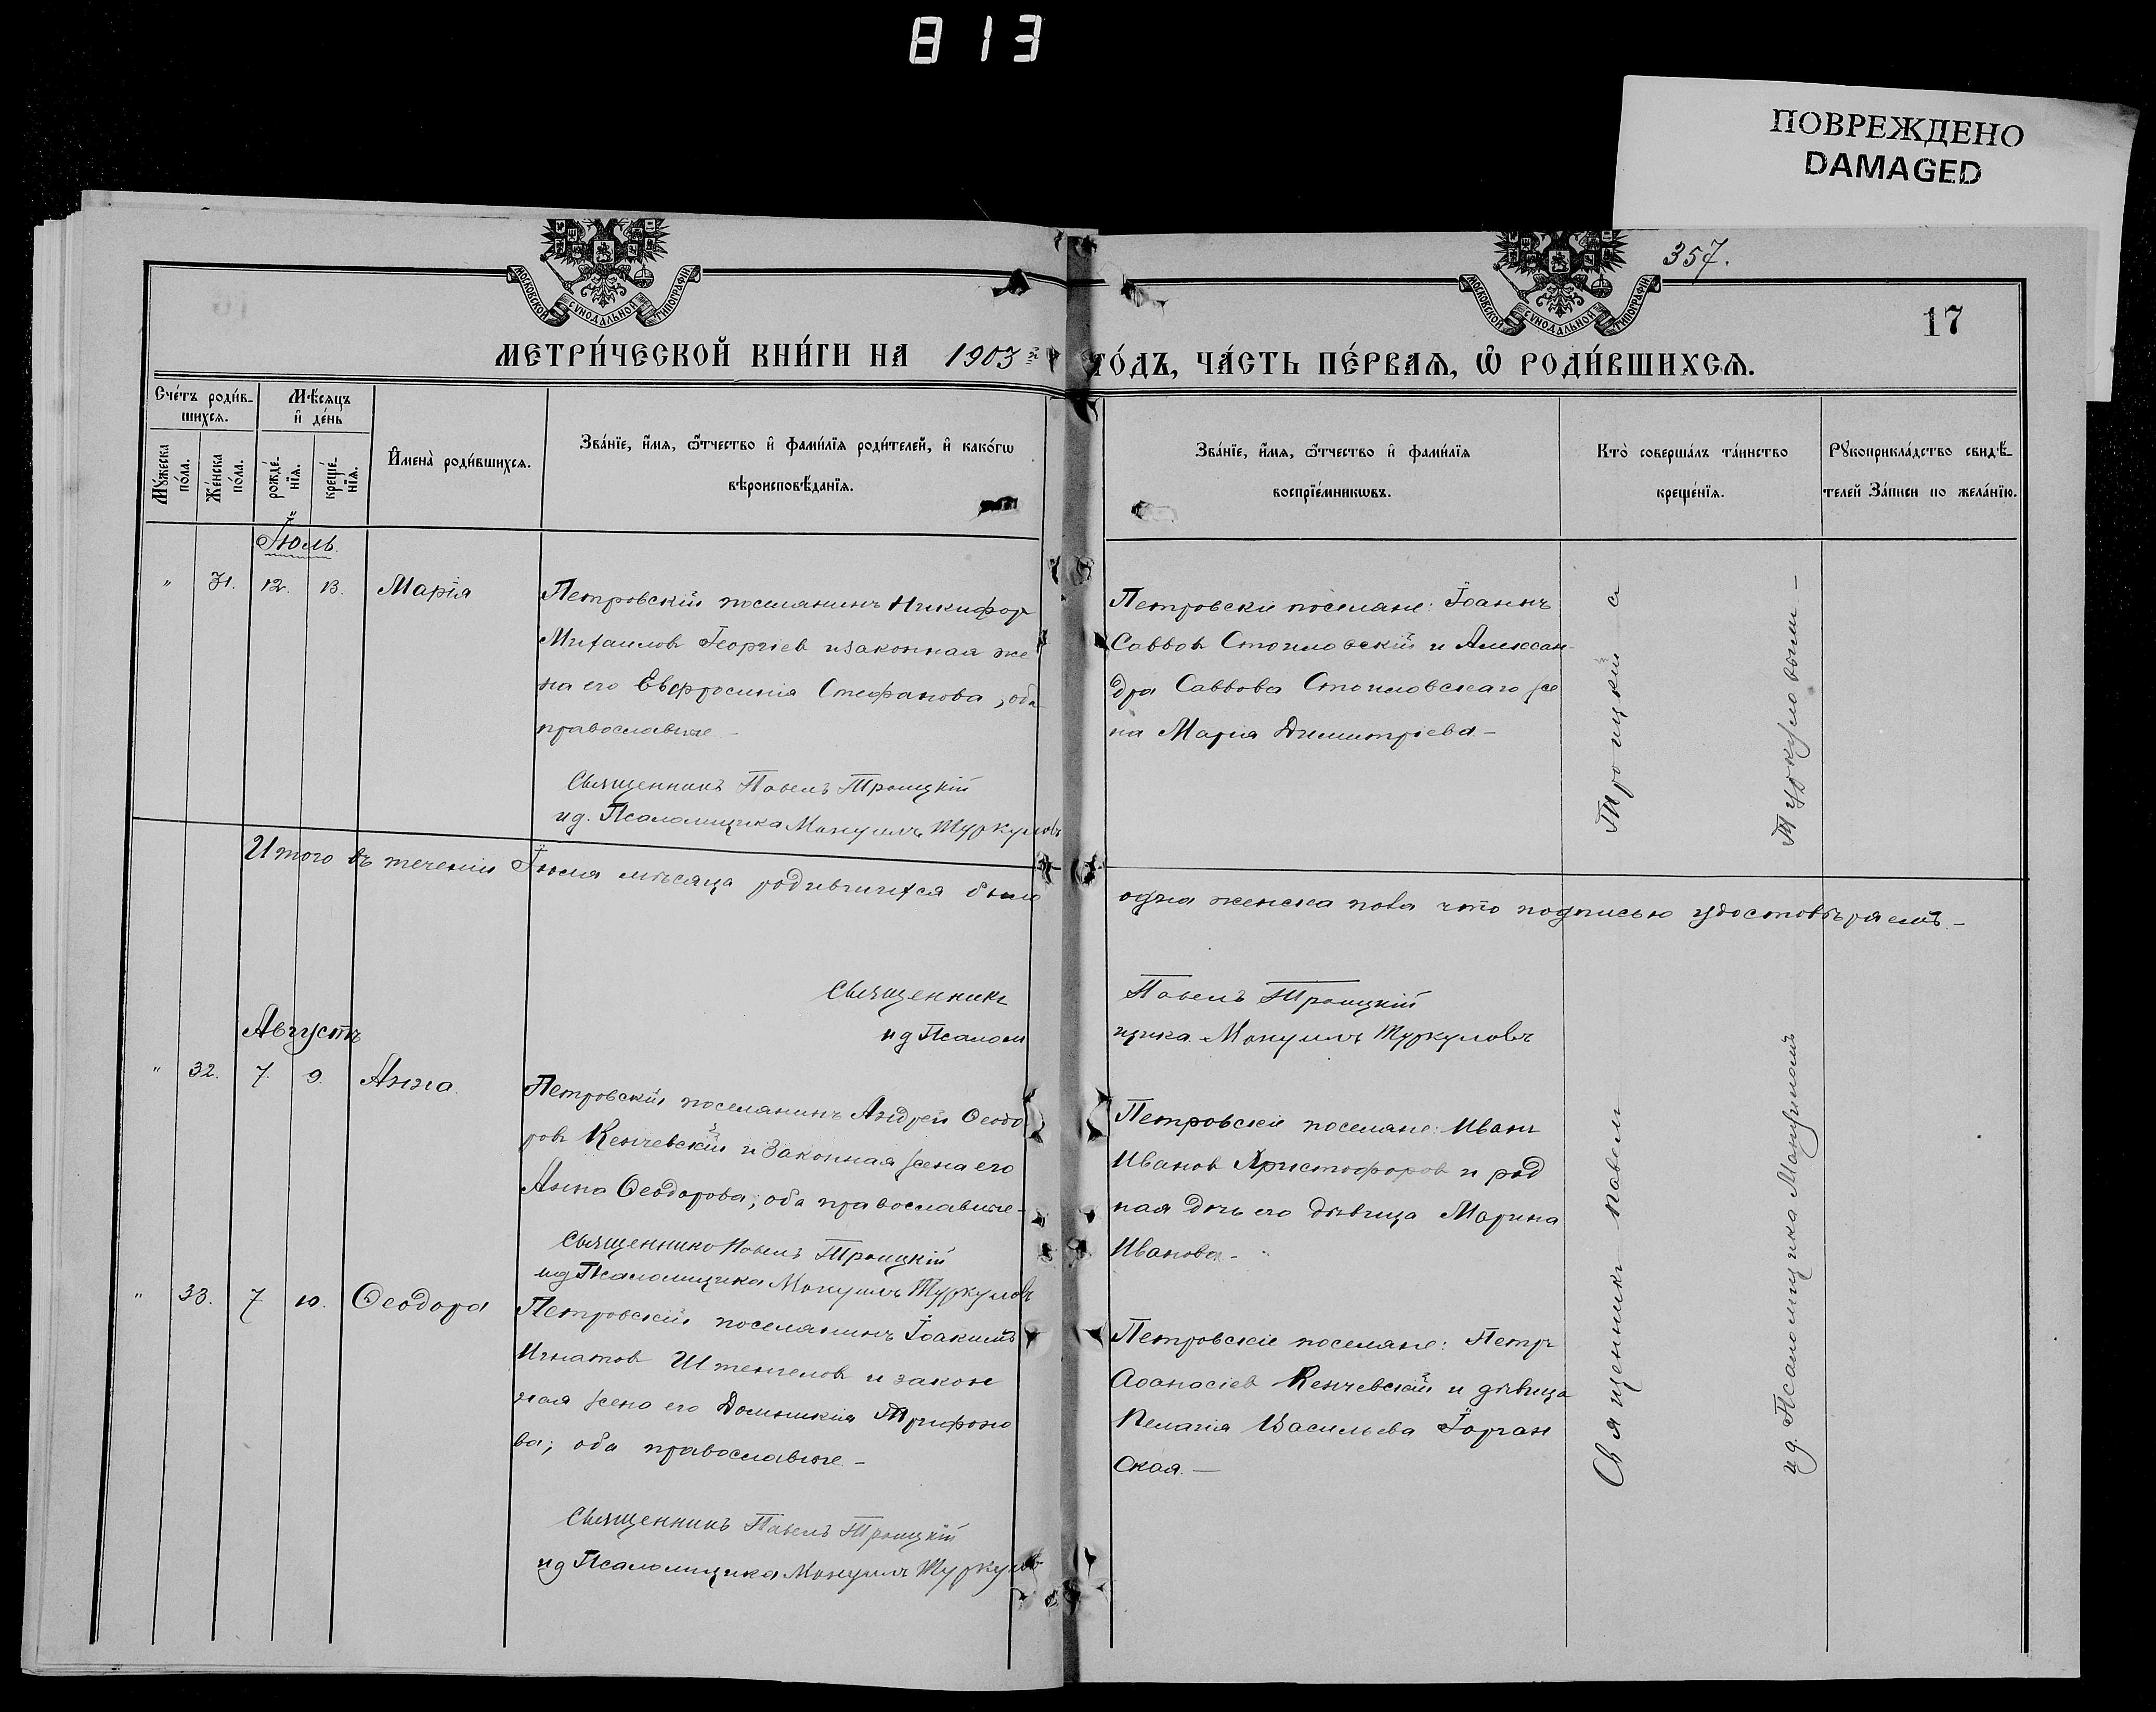 813
ПОВРЕЖДЕНО
DAMAGED
МОСКОВСКОЙ СѴНОДАЛЬНОЙ ТИПОГРАФІИ
МОСКОВСКОЙ СѴНОДАЛЬНОЙ ТИПОГРАФІИ
357.
17
МЕТРИ́ЧЕСКОЙ КНИ́ГИ НА 1903 й ГО́ДЪ, ЧА́СТЬ ПЕ́РВАѦ, Ѡ҆ РОДИ́ВШИХСѦ.
Сче́тъ роди́в-
шихсѧ.
Мꙋ́жеска по́ла.
Же́нска по́ла.
Мѣ́сяцъ
и҆ де́нь
рожде́-
нїѧ.
креще́-
нїѧ.
И҆мена̀ роди́вшихсѧ.
Зва́нїе, и҆́мѧ, ѻ҆́тчество и҆ фами́лїѧ роди́телей, и҆ како́гѡ
вѣроисповѣ́данїѧ.
Зва́нїе, и҆́мѧ, ѻ҆́тчество и҆ фами́лїѧ
воспрїе́мникѡвъ.
Кто̀ соверша́лъ та́инство
креще́нїѧ.
Рꙋкоприкла́дство свидѣ́-
телей За́писи по жела́нїю.
Іюль.
" 31. 12. 13. Марія
Петровскій поселянинъ Никифор
Михаилов Георгіев и законная же
на его Евфросинія Стефанова, оба
православные -
Священникъ Павелъ Троицкій
ид. Псаломщика Мануилъ Туркуловъ
Петровскіе поселяне: Іоаннъ
Саввов Стоиловскій и Алексан-
дра Саввова Стоиловскаго же
на Марія Димитріева -
Итого въ теченіи Іюля мѣсяца родившихся было одна женска пола что подписью удостовѣряемъ. -
Священникъ Павелъ Троицкій
ид Псаломщика Мануилъ Туркуловъ
Августъ
" 32. 7. 9. Анна.
Петровскій поселянинъ Андрей Ѳеодо
ровъ Кенчевскій и законная жена его
Анна Ѳеодорова; оба православные -
Священникъ Павелъ Троицкій
ид Псаломщика Мануилъ Туркуловъ
Петровскіе поселяне: Иванъ
Иванов Христофоров и род
ная дочь его дѣвица Марина
Иванова. -
" 33. 7 10. Ѳеодора
Петровскій поселянинъ Іоакимъ
Игнатов Штенгелов и закон
ная жена его Домникія Трифоно
ва; оба православные. -
Священникъ Павелъ Троицкій
ид Псаломщика Мануилъ Туркуловъ
Петровскіе поселяне: Петръ
Аѳанасіев Кенчевскій и дѣвица
Пелагія Васильева Іорган
ская. -
Священникъ Павелъ Троицкій с
ид. Псаломщика Мануиломъ Туркуловым -